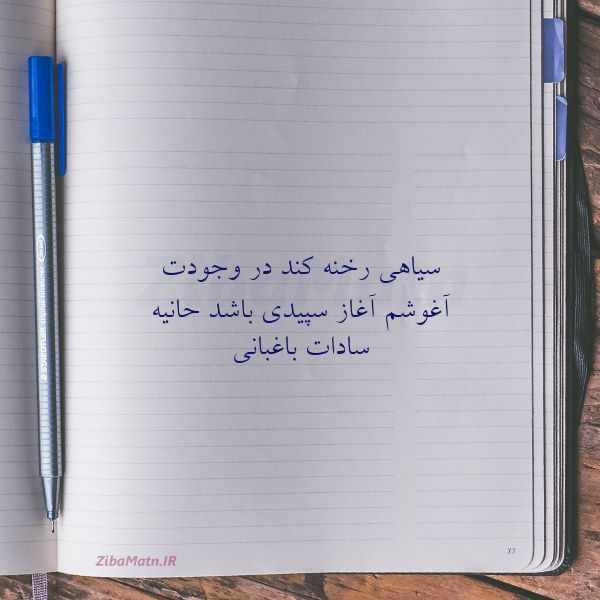 سیاهی رخنه کند در وجودت
آغوشم آغاز سپیدی باشد حانیه
سادات باغبانی
ZibaMatn.IR
77